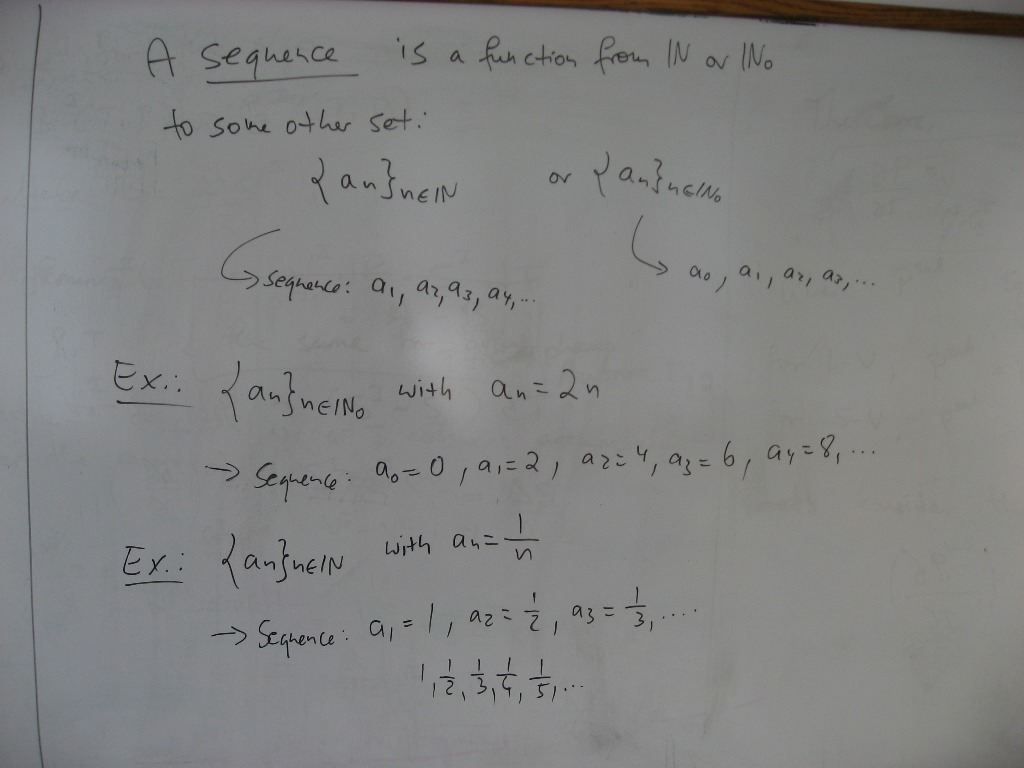 A sequence is a function from ℕ or ℕ₀
to some other set:
{an}n∈ℕ or {an}n∈ℕ₀
↳ sequence: a₁, a₂, a₃, a₄,... ↳ a₀, a₁, a₂, a₃,...
Ex.: {an}n∈ℕ₀ with an = 2n
→ Sequence: a₀ = 0, a₁ = 2, a₂ = 4, a₃ = 6, a₄ = 8, ...
Ex.: {an}n∈ℕ with an = 1/n
→ Sequence: a₁ = 1, a₂ = 1/2, a₃ = 1/3, ....
1, 1/2, 1/3, 1/4, 1/5, ...